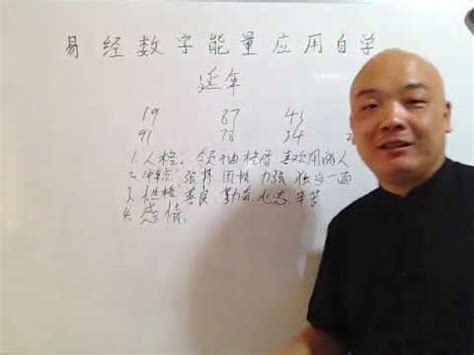 易经数字能量应用自学
延年
19 87 43
91 78 34
1.人格: 领袖格局 喜欢用 人
2. 力强 独当一面
3.性格 善良 勤奋 辛苦
4.感情: